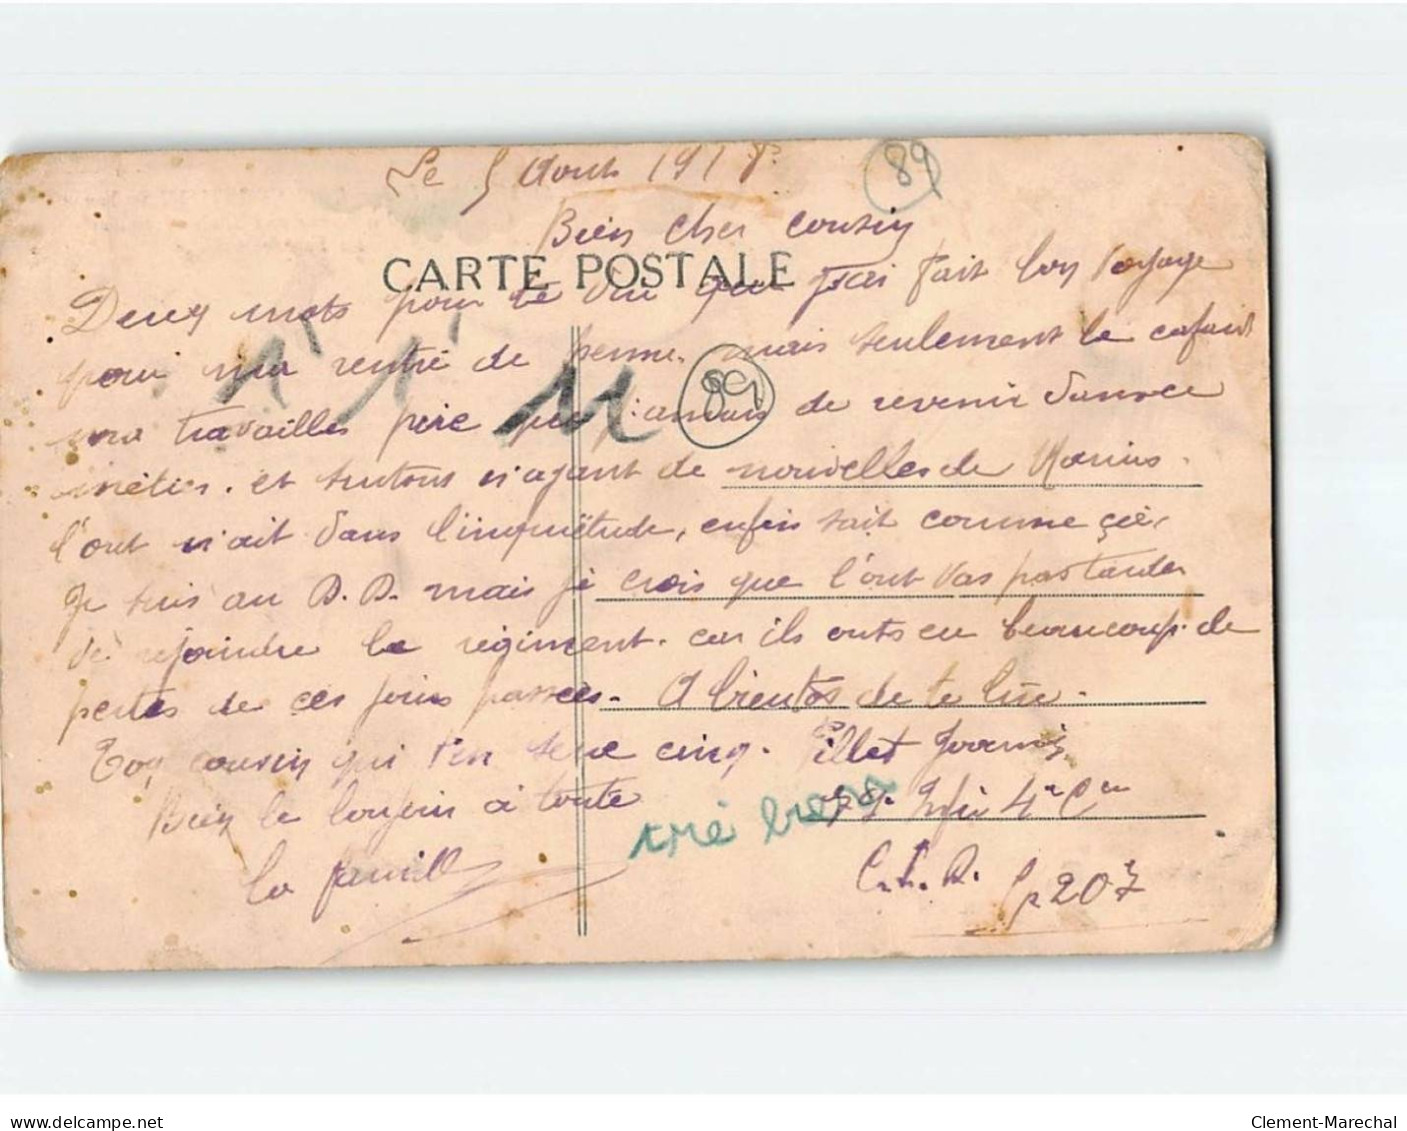 Le 5 Aout 1918
89
Bien cher cousin
CARTE POSTALE
Deux mots pour te dire que j'ai fait bon voyage
pour ma rentré de perme. mais seulement le cafard
ma travailles pire que jamais de revenir dans ce
89
métier. et surtout n'ayant de nouvelles de Marius.
l'ont n'ait dans l'inquiëtude, enfin sait comme çà.
Je suis au D.D. mais je crois que l'ont vas pas tarder
de rejoindre le régiment. car ils onts eu beaucoup de
pertes de ces jours passées. A bientos de te lire.
Ton cousin qui t'en serre cinq. Pillet
Bien le bonjour à toute
Infie 4e Cie
la famille
S P 207
delcampe.net
Clement-Marechal